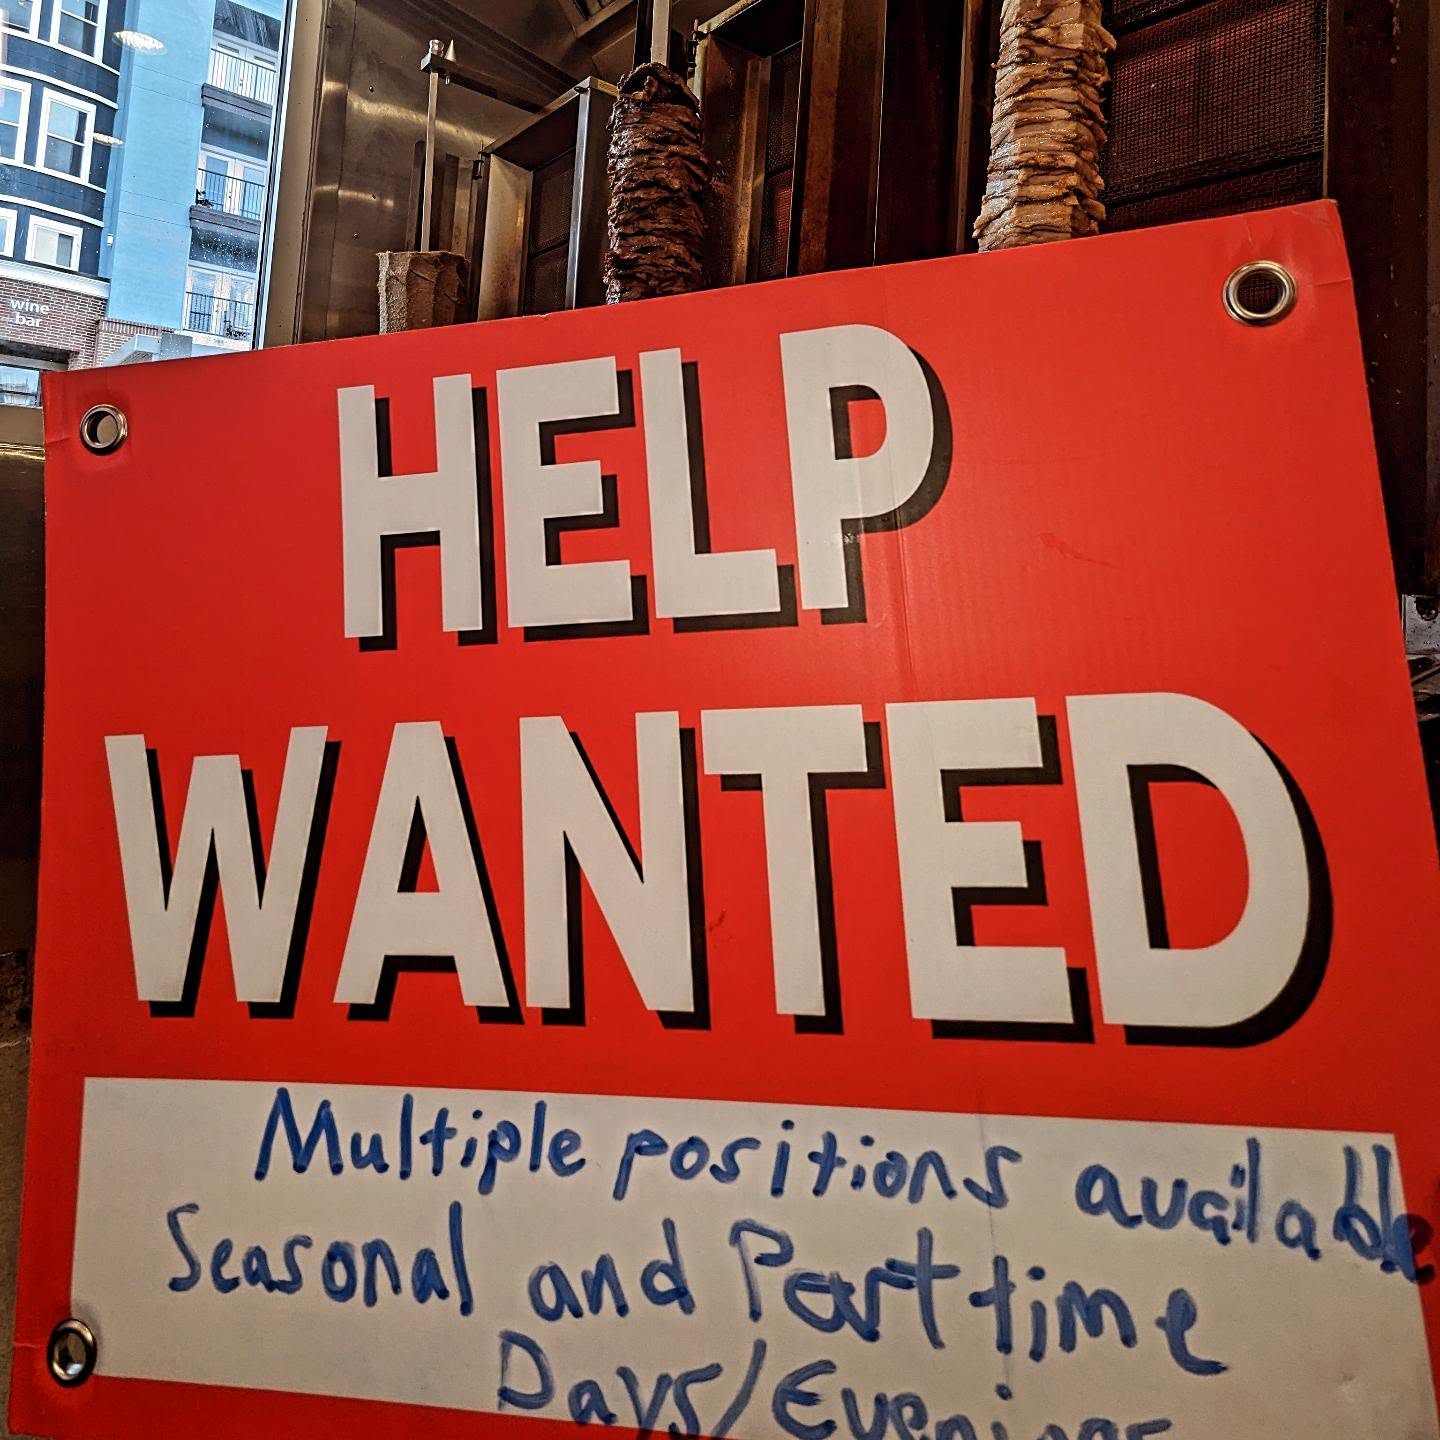 wine
bar
HELP
WANTED
Multiple positions available
Seasonal and Part time
Days/Evenings